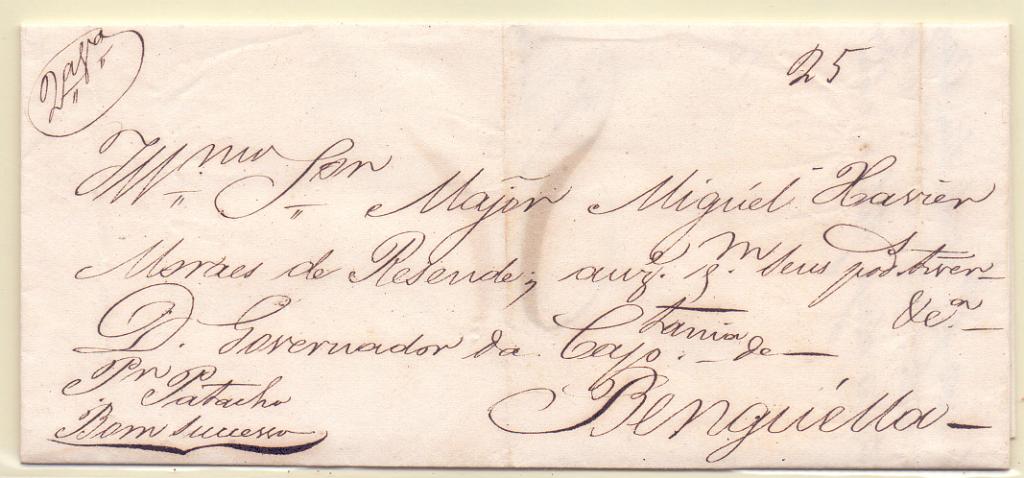 2ª Vª
25
Illmo Snr Major Miguel Xavier
Moraes de Resende; auzª. a qm Seus pod. tiver
&ca.
D. Governador da Capitania de
Benguella
Pr Patacho
Bom Successo